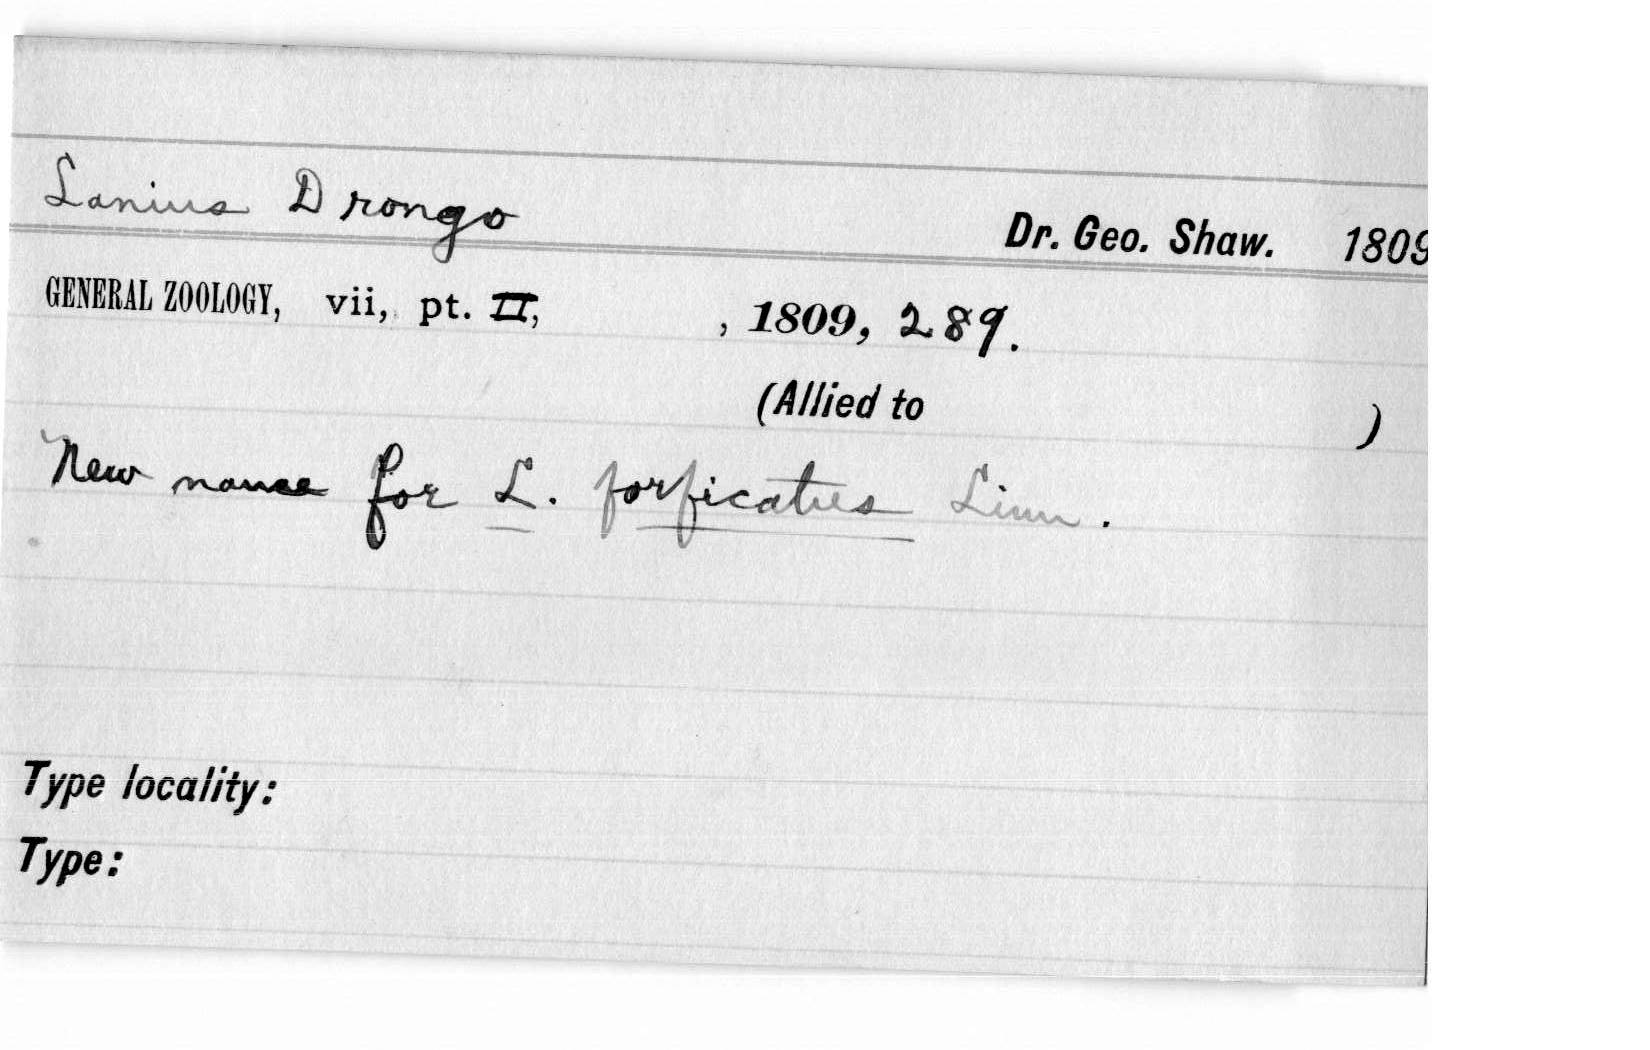 Lanius Drongo
Dr. Geo. Shaw. 1809
GENERAL ZOOLOGY, vii, pt. II, , 1809, 289.
(Allied to )
New name for L. forficatus Linn.
Type locality:
Type: